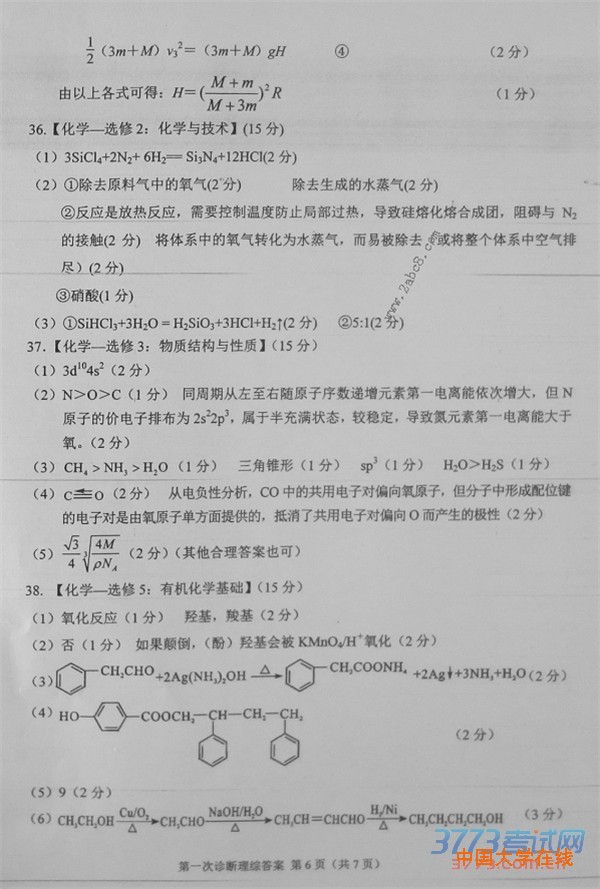 1/2（3m＋M）v₃²＝（3m＋M）gH ④ （2 分）
由以上各式可得：H＝(（M＋m）/（M＋3m）)²R （1 分）
36.【化学—选修 2：化学与技术】(15 分)
（1）3SiCl₄+2N₂+ 6H₂══ Si₃N₄+12HCl(2 分)
（2）①除去原料气中的氧气(2 分) 除去生成的水蒸气(2 分)
②反应是放热反应，需要控制温度防止局部过热，导致硅熔化熔合成团，阻碍与 N₂
的接触(2 分) 将体系中的氧气转化为水蒸气，而易被除去（或将整个体系中空气排
尽）(2 分)
③硝酸(1 分)
www.2abc8.com
（3）①SiHCl₃+3H₂O = H₂SiO₃+3HCl+H₂↑(2 分) ②5:1(2 分)
37.【化学—选修 3：物质结构与性质】（15 分）
（1）3d¹⁰4s²（2 分）
（2）N＞O＞C（1 分） 同周期从左至右随原子序数递增元素第一电离能依次增大，但 N
原子的价电子排布为 2s²2p³，属于半充满状态，较稳定，导致氮元素第一电离能大于
氧。（2 分）
（3）CH₄ > NH₃ > H₂O （1 分） 三角锥形（1 分） sp³（1 分） H₂O＞H₂S（1 分）
（4）C≡O（2 分） 从电负性分析，CO 中的共用电子对偏向氧原子，但分子中形成配位键
的电子对是由氧原子单方面提供的，抵消了共用电子对偏向 O 而产生的极性（2 分）
（5）√3/4 ∛(4M/ρN_A)（2 分）（其他合理答案也可）
38. 【化学—选修 5：有机化学基础】（15 分）
（1）氧化反应（1 分） 羟基，羧基（2 分）
（2）否（1 分） 如果颠倒，（酚）羟基会被 KMnO₄/H⁺氧化（2 分）
（3） CH₂CHO +2Ag(NH₃)₂OH △ CH₂COONH₄ +2Ag↓+3NH₃+H₂O（2 分）
（4） HO— —COOCH₂—CH—CH₂—CH₂
（2 分）
（5）9（2 分）
（6）CH₃CH₂OH Cu/O₂ △ CH₃CHO NaOH/H₂O △ CH₃CH＝CHCHO H₂/Ni △ CH₃CH₂CH₂CH₂OH （3 分）
3773考试网
第一次诊断理综答案 第 6 页（共 7 页）
中国大学在线